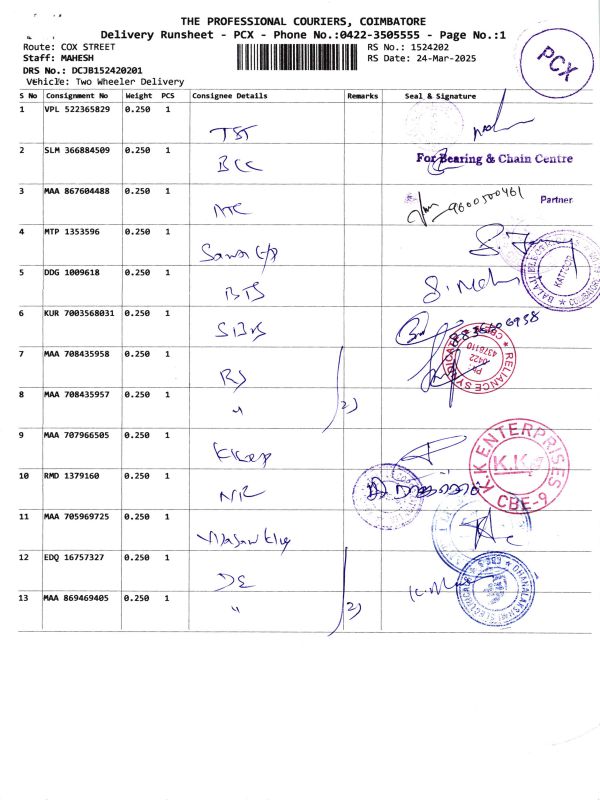 THE PROFESSIONAL COURIERS, COIMBATORE
Delivery Runsheet - PCX - Phone No.:0422-3505555 - Page No.:1
Route: COX STREET
RS No.: 1524202
Staff: MAHESH
RS Date: 24-Mar-2025
DRS No.: DCJB152420201
Vehicle: Two Wheeler Delivery
PCX
S No Consignment No Weight PCS Consignee Details Remarks Seal & Signature
1 VPL 522365829 0.250 1 TST
2 SLM 366884509 0.250 1 BCC For Bearing & Chain Centre
3 MAA 867604488 0.250 1 9600500461 Partner
4 MTP 1353596 0.250 1
5 DDG 1009618 0.250 1 BTS
6 KUR 7003568031 0.250 1
7 MAA 708435958 0.250 1 RS
RELIANCE
Ph
0422
4378110
8 MAA 708435957 0.250 1 " 2)
9 MAA 707966505 0.250 1
K.K ENTERPRISES
K.K.E
CBE-9
10 RMD 1379160 0.250 1
11 MAA 705969725 0.250 1
12 EDQ 16757327 0.250 1 DE
13 MAA 869469405 0.250 1 " 2)